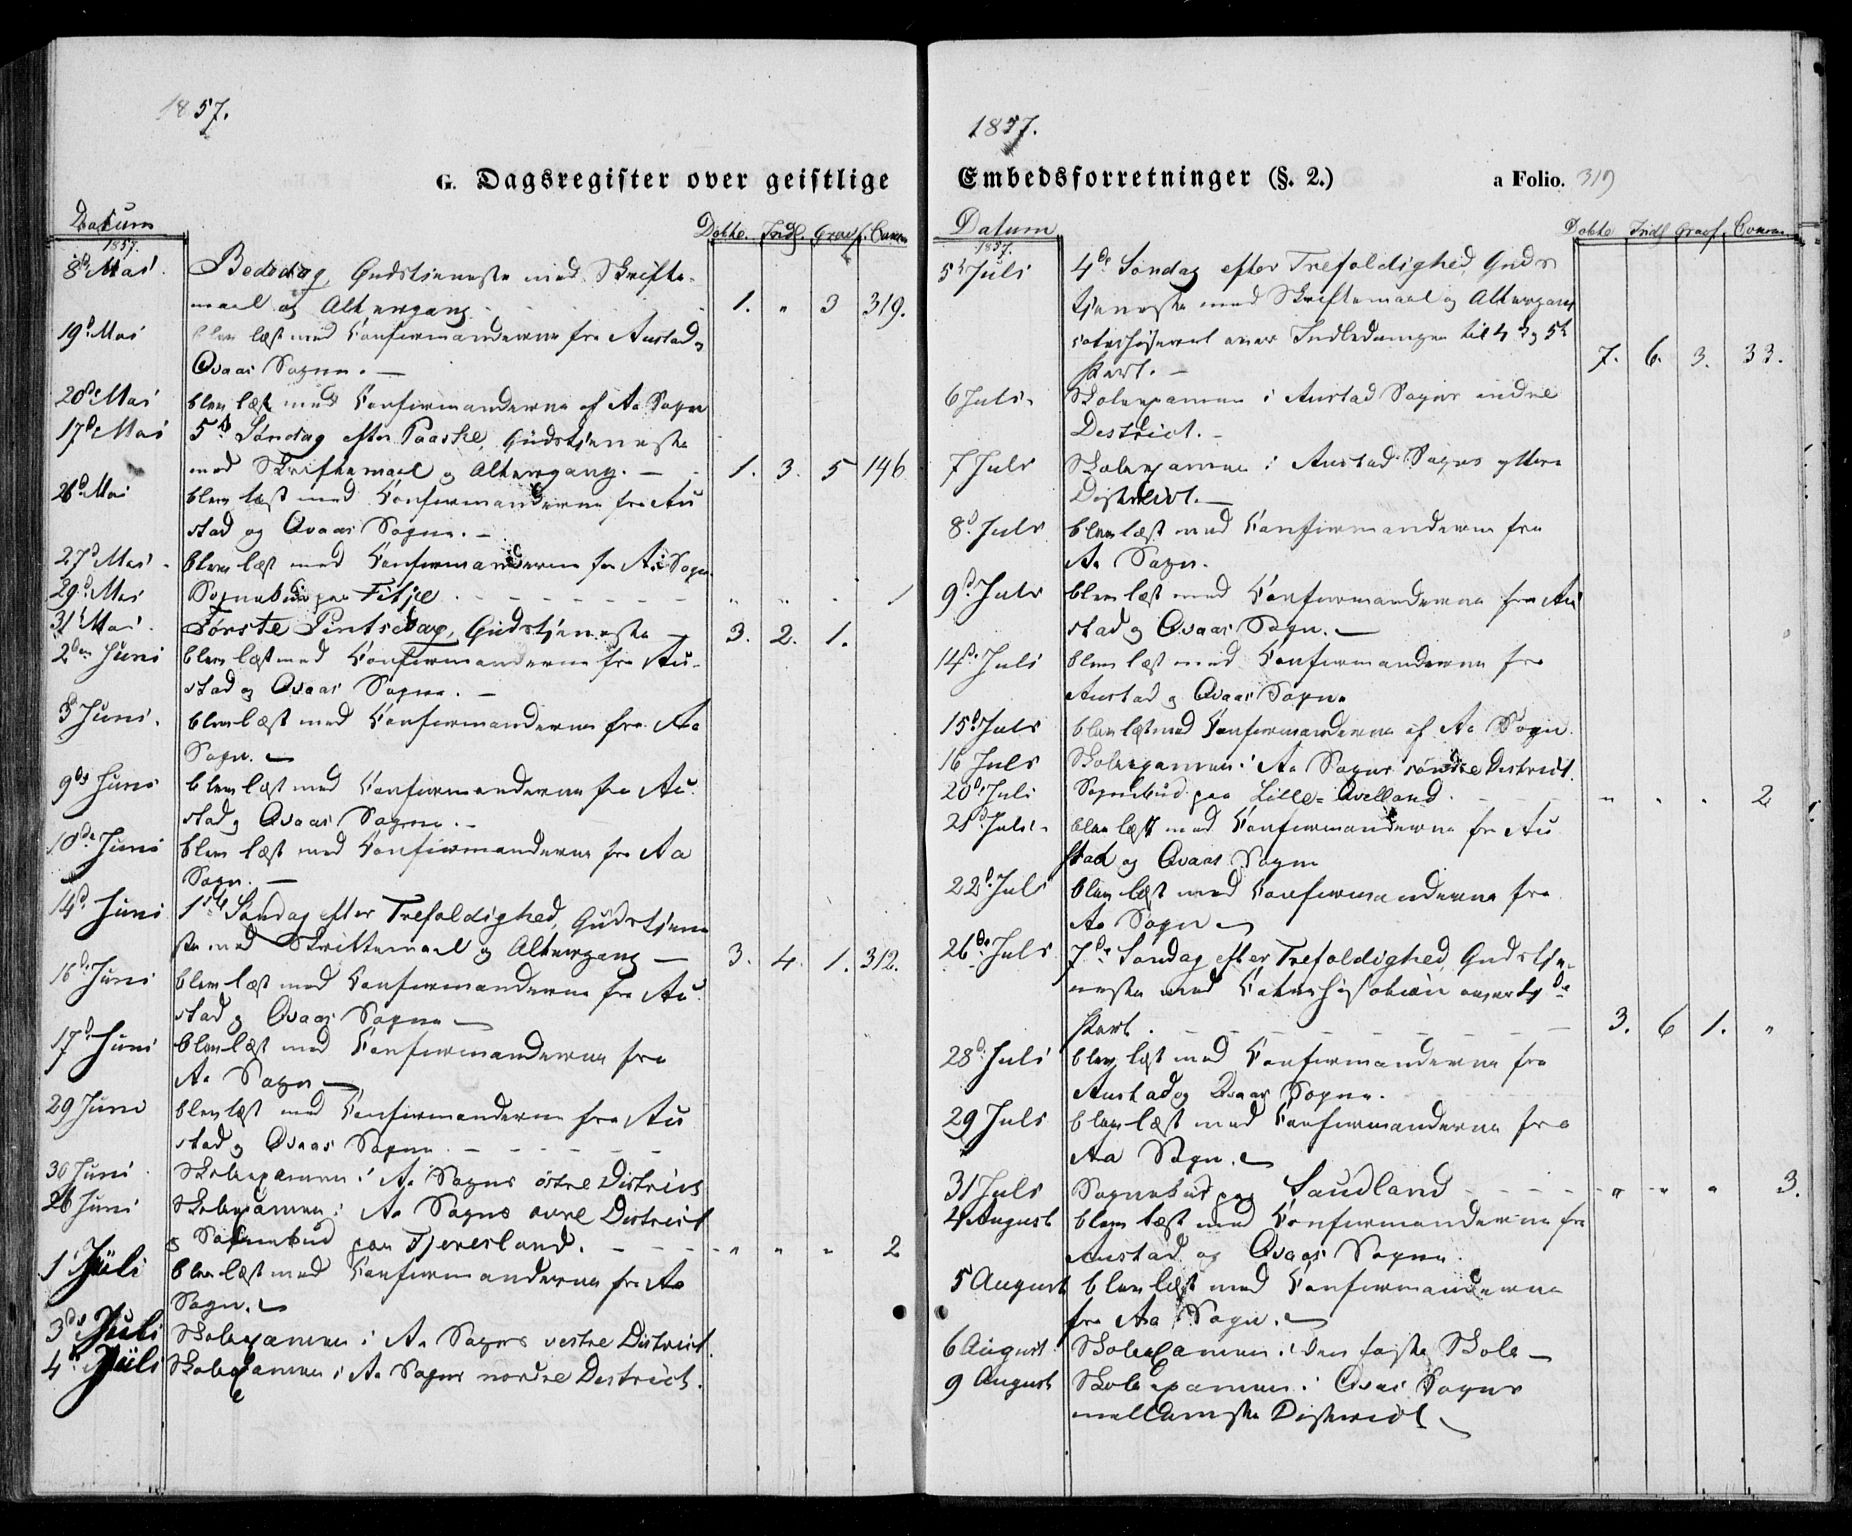 1857.
G. Dagsregister over geistlige
Datum Døbte. Indl. Gravf. Comm.
1857.
8de Mai. Bededag, Gudstjeneste med Skrifte-
maal og Altergang 1. " 3 319.
19d Mai blev læst med Confirmanderne fra Austad &
Qvaas Sogne. —
20de Mai blev læst med Confirmanderne af Aa Sogn
17d Mai 5te Søndag efter Paaske, Gudstjeneste
med Skriftemaal og Altergang. — 1. 3. 5 146
26d Mai blev læst med Confirmanderne fra Au
stad og Qvaas Sogne. —
27d Mai blev læst med Confirmanderne fra Aa Sogn
29d Mai Sognebud paa Fitje - - - " " - 1
31t Mai. Første Pintsedag, Gudstjeneste — 3. 2. 1.
2den Juni blev læst med Confirmanderne fra Au-
stad og Qvaas Sogne. —
3 Juni. blev læst med Confirmanderne fra Aa
Sogn. —
9de Juni blev læst med Confirmanderne fra Au
stad og Qvaas Sogne. —
10de Juni blev læst med Confirmanderne fra Aa
Sogn. —
14d Juni 1ste Søndag efter Trefoldighed, Gudstjene
ste med Skriftemaal og Altergang — 3. 4. 1. 312.
16d Juni blev læst med Confirmanderne fra Au
stad og Qvaas Sogne —
17d Juni blev læst med Confirmanderne fra
Aa Sogn —
29 Juni blev læst med Confirmanderne fra Au
stad og Qvaas Sogne - - - -
30 Juni Skoleexamen i Aa Sogns østre District
26 Juni Skoleexamen i Aa Sogns øvre District
& Sognebud paa Tjersland. - - - " " " 2
1 Juli blev læst med Confirmanderne fra Aa
Sogn. —
3de Juli Skoleexamen i Aa Sogns vestre District.
4 Juli Skoleexamen i Aa Sogns nordre District.
1857.
Embedsforretninger (§. 2.) a Folio. 319
Datum Døbte Indl Gravf. Comm
1857.
5t Juli 4de Søndag efter Trefoldighed, Guds
tjeneste med Skriftemaal og Altergang
catechiseret over Indledningen til 4d og 5t
Part. — 7. 6. 3. 33.
6 Juli. Skoleexamen i Austad Sogns indre
District. —
7 Juli Skoleexamen i Austad Sogns yttre
District. —
8d Juli blev læst med Confirmanderne fra
Aa Sogn.
9d Juli blev læst med Confirmanderne fra Au
stad og Qvaas Sogn. —
14d Juli blev læst med Confirmanderne fra
Austad og Qvaas Sogne
15d Juli blev læst med Confirmanderne af Aa Sogn.
16 Juli Skoleexamen i Aa Sogns søndre District.
20d Juli Sognebud paa Lille-Qvelland. - - " " " 2
21d Juli blev læst med Confirmanderne fra Au
stad og Qvaas Sogne
22d Juli blev læst med Confirmanderne fra
Aa Sogn —
26de Juli 7de Søndag efter Trefoldighed, Gudstje-
neste med Catechisation over 4de
Part. - - - 3. 6 1. "
28d Juli blev læst med Confirmanderne fra
Austad og Qvaas Sogne.
29 Juli blev læst med Confirmanderne fra
Aa Sogn. —
31 Juli Sognebud paa Saudland - - - " " " 3.
4 August blev læst med Confirmanderne fra
Austad og Qvaas Sogne.
5 August blev læst med Confirmanderne
fra Aa Sogn. —
6 August Skoleexamen i den faste Skole —
9 August Skoleexamen i Qvaas Sogns
mellemste District —